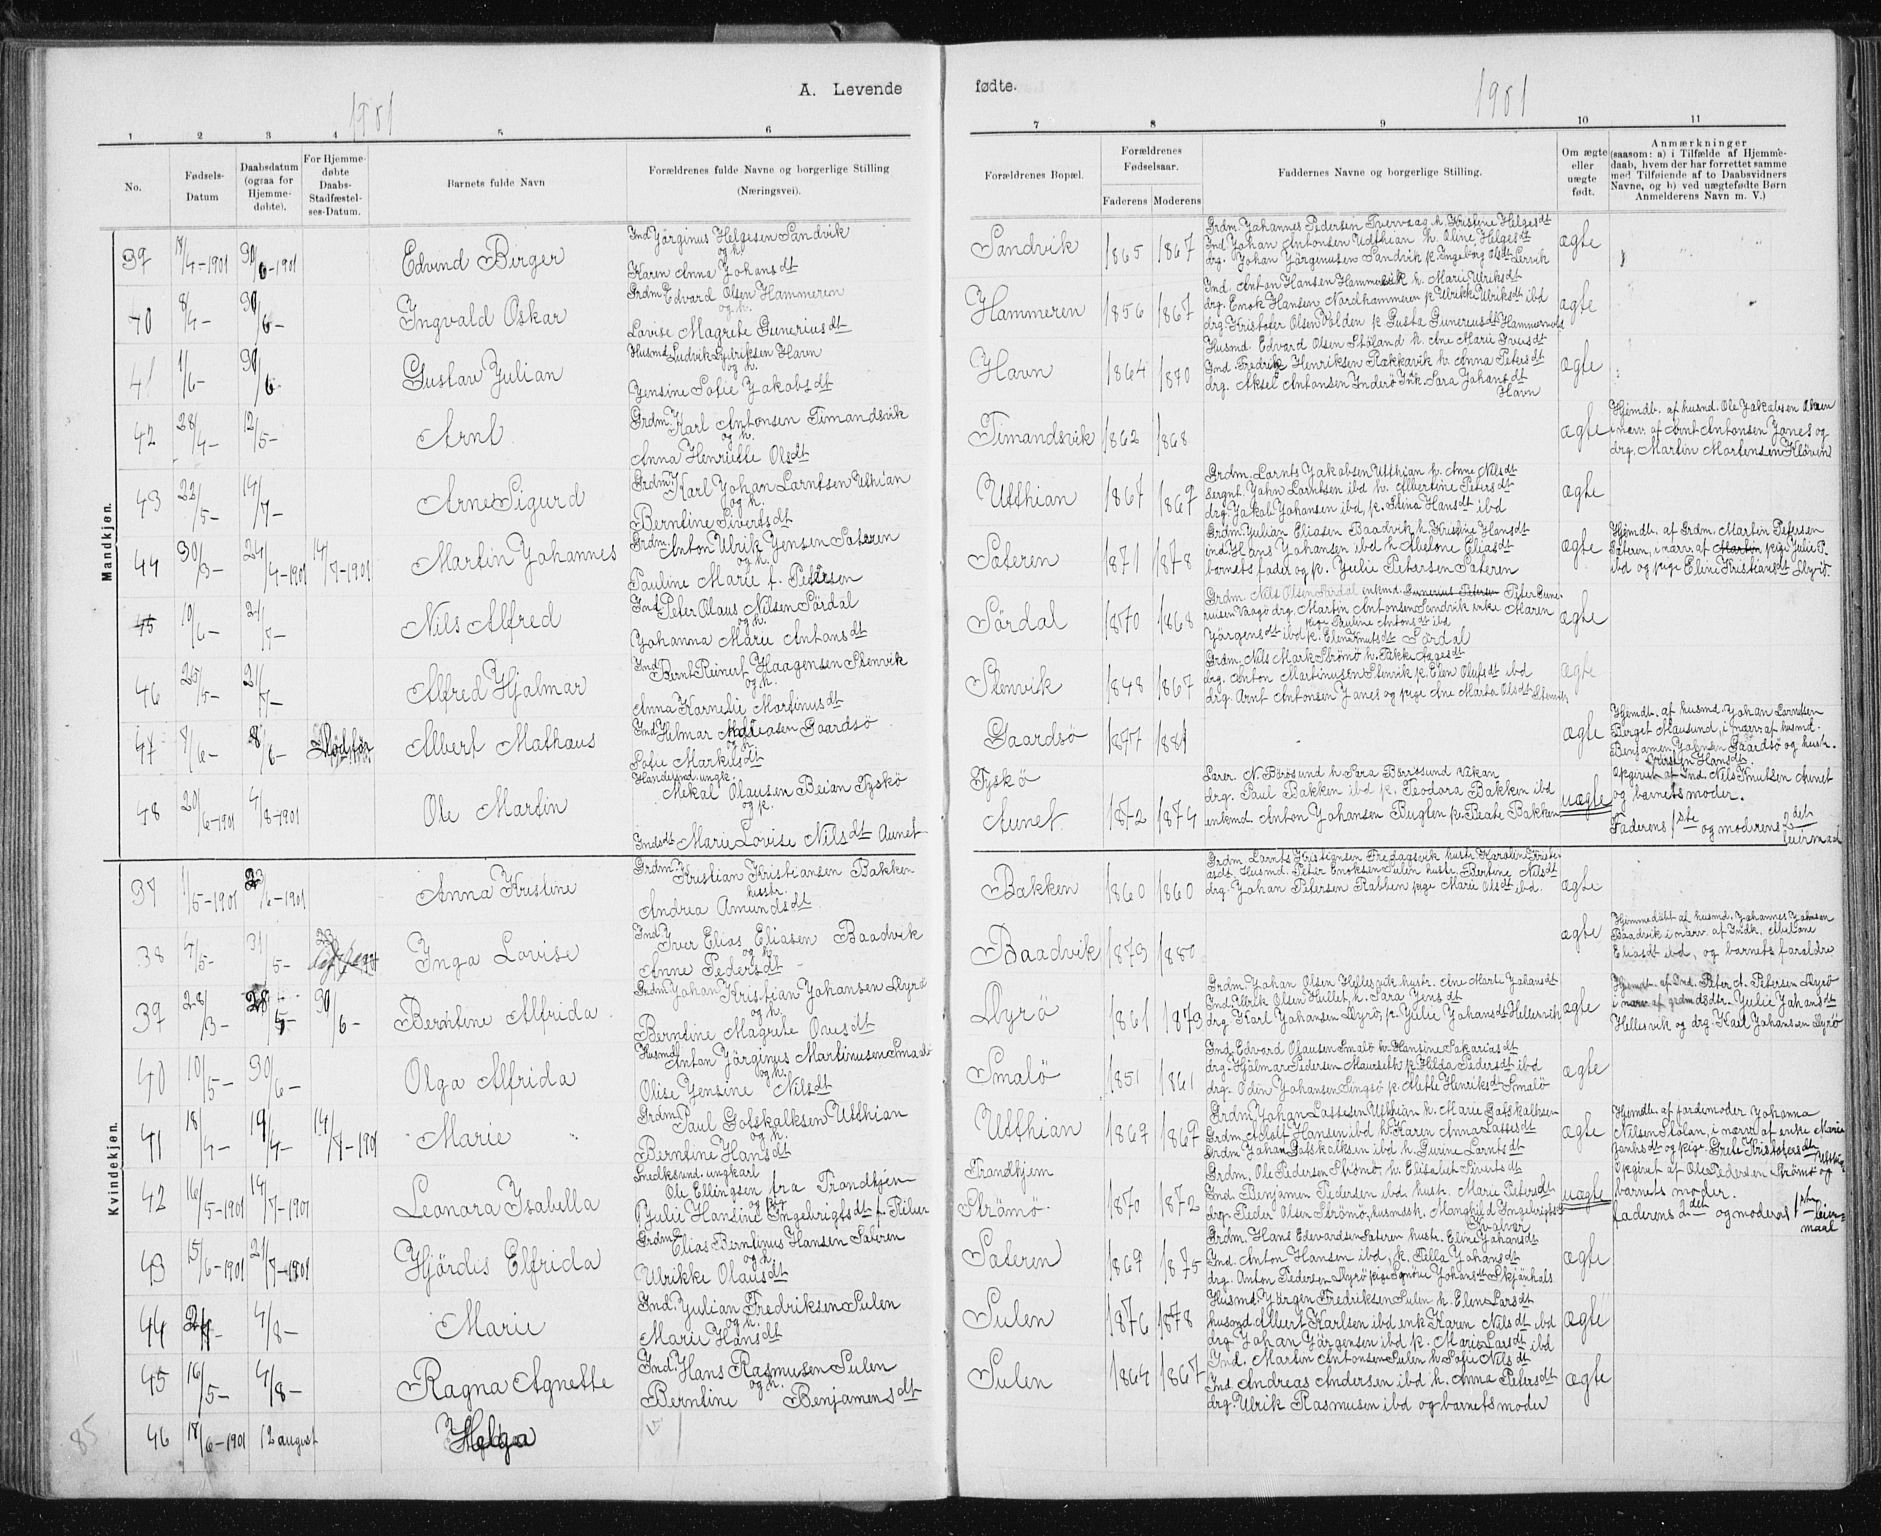 A. Levende
fødte.
1901
1901
1
2
3
4
5
6
7
8
9
10
11
No.
Fødsels-
Datum
Daabsdatum
(ogsaa for
Hjemme-
døbte).
For Hjemme-
døbte
Daabs-
Stadfæstel-
ses-Datum.
Barnets fulde Navn
Forældrenes fulde Navne og borgerlige Stilling
(Næringsvei).
Forældrenes Bopæl.
Forældrenes
Fødselsaar.
Faderens
Moderens
Faddernes Navne og borgerlige Stilling.
Om ægte
eller
uægte
født.
Anmærkninger
(saasom: a) i Tilfælde af Hjemme-
daab, hvem der har forrettet samme
med Tilføiende af to Daabsvidners
Navne, og b) ved uægtefødte Børn
Anmelderens Navn m. V.)
Mandkjøn.
39 Edvind Birger
Ind Jörginus Helgesen Sandvik
og h.
Karen Anna Johansdt
Sandvik 1865 1867
Ind Johan Antonsen Utthian h. Oline Helgesdt
ægte
40 8/4- 30/6- Ingvald Oskar
Grdm Edvard Olsen Hammeren
og h.
Lovise Magrete Guneriusdt
Hammeren 1856 1867
Ind. Anton Hansen Hammervik h. Marie Ulriksdt
drg. Enok Hansen Nordhammeren p. Ulrikke Ulriksdt ibd
ægte
41 1/6- 30/6 Gustav Julian
Husmd Ludvik Fredriksen Havn
og h.
Jensine Sofie Jakobsdt
Havn 1864 1870
Husmd. Edvard Olsen Stöland h. Ane Marie Iversdt
Ind Fredrik Henriksen Rækkavik h. Anna Petersdt
Havn
ægte
42 28/4- 12/5- Arnt
Grdm. Karl Antonsen Timandsvik
og h.
Anna Henriette Olsdt
Timandsvik 1862 1868
ægte
Hjemdb. af husmd. Ole Jakobsen
i nærv. af Arnt Antonsen Janes og
drg. Martin Mortensen Klöven
43 22/5- 14/7- Arne Sigurd
Grdm. Karl Johan Larntsen Utthian
og h.
Berntine Sivertsdt
Utthian 1867 1869
Grdm. Larnts Jakobsen Utthian h. Anne Nilsdt
sergnt. John Larntsen ibd h. Albertine Petersdt
drg. Jakob Johansen ibd, p. Stina Hansdt ibd
ægte
44 30/3- 24/4-1901 14/7-1901 Martin Johannes
Grdm. Anton Ulrik Jensen Sateren
og h.
Pauline Marie f. Petersen
Sateren 1871 1878
Grdm. Julian Eliasen Baadvik h. Kristine Hansdt
ind Hans Johansen ibd h. Abelone Eliasdt
barnets fader og p. Julie Petersen Sateren
ægte
Hjemdt. af Grdm. Martin Petersen
Sateren, i nærv. af Martin pige Julie P.
ibd og pige Eline Kristiansdt Dyrö.
45 10/6- 21/7- Nils Alfred
Ind Peter Olaus Nilsen Sördal
og h.
Johanna Marie Antonsdt
Sördal 1870 1868
Grdm. Nils Olsen Sördal enkmd. Gunerius Petersen Peter Gune-
riusen Vaagö drg. Martin Antonsen Sandvik enke Maren
pige Pauline Antonsdt ibd
Jörgensdt ibd p. Elen Knutsdt Sördal
ægte
46 25/5- 21/7- Alfred Hjalmar
Ind Bernt Reinert Haagensen Stenvik
og h.
Anna Karnelie Martinusdt
Stenvik 1848 1867
drg. Anton Martinusen Stenvik p. Elen Olufsdt ibd
drg. Arnt Antonsen Janes og pige Ane Marta Olsdt Stenvik
ægte
47 8/6- 8/6- Albert Mathæus
Ind Helmar Gaardsö
og h.
Sofie Markusdt
Gaardsö 1877 1881
ægte
Hjemdt. af husmd. Johan Larntsen
Berget Mausund, i nærv. af husmd.
Benjamen Johnsen Gaardsö og hustr.
48 20/6-1901 4/8-1901 Ole Martin
Handelsmd. ungk.
Mekal Olausen Beian Tyskö
og p.
Indsdt Marie Lovise Nilsdt Aunet
Tyskö
Aunet 1872 1874
Lærer. N. Börösund h. Sara Börrösund Vikan
drg. Paul Bakken ibd p. Teodora Bakken ibd
enkmd. Anton Johansen Buglen p. Beate Bakken
uægte
Opgivet af Ind. Nils Knutsen Aunet
og barnets moder.
Faderens 1ste og moderens 2det
leiermaal
Kvindekjøn.
37 1/5-1901 23/6-1901 Anna Kristine
Grdm. Kristian Kristiansen Bakken
hustr.
Andrea Amundsdt
Bakken 1860 1860
Grdm. Larnts Kristiansen Fredagsvik hustr. Karoline Kristi-
ansdt. Husmd. Peter Enoksen Sulen hustr. Berntine Nilsdt
drg. Johan Petersen Rabben pige Marie Olsdt ibd.
ægte
38 4/5- 31/5- Inga Lovise
Ind Iver Elias Eliasen Baadvik
og h.
Anne Pedersdt
Baadvik 1873 1880
ægte
Hjemmedöbt af husmd. Johannes Johnsen
Baadvik i nærv. af Indk. Abelone
Eliasdt ibd, og barnets foraldre
39 28/3- 28/5- 30/6- Berntine Alfrida
Grdm Johan Kristian Johansen Dyrö
og h.
Berntine Magrete Ovesdt
Dyrö 1861 1873
Grdm Johan Olsen Hellesvik hustr. Ane Marte Johansdt
Ind Ulrik Olsen Hullet h. Sara Jensdt
drg. Karl Johansen Dyrö, p. Julie Johansdt Hellesvik
ægte
Hjemdt. af Ind. Peter A. Petersen Dyrö
i nærv af grdmdsdtr. Julie Johansdt
Hellesvik og drg. Karl Johansen Dyrö
40 10/5- 30/6- Olga Alfrida
Husmd Anton Jörginus Martinusen Smalö
og h.
Olise Jensine Nilsdt
Smalö 1851 1861
Ind. Edvard Olausen Smalö h. Hansine Sakariasdt
drg. Hjalmar Pedersen Maurseth p. Hilda Pedersdt ibd
drg. Odin Johansen Singsö p. Alette Henriksdt Smalö
ægte
41 18/4- 19/4- 14/7-1901 Marie
Grdm. Paul Gotskalksen Utthian
og h.
Berntine Hansdt
Utthian 1869 1869
Grdm Johan Lassesen Utthian h. Marie Gotskalksen
Grdm. Adolf Hansen ibd h. Karen Anna Lassesdt
Grdm Johan Gotskalksen ibd h. Gurine Larntsdt
ægte
Hjemdt. af jordemoder Johanna
Nilsen Stölan, i nærv. af enke Marie
Johnsdt og pige. Grete Kristofersdt Utthian
42 16/5-1901 14/7-1901 Leonara Isabella
Smedksvnd. ungkarl
Ole Ellingsen fra Trondhjem
og pige
Julie Hansine Ingebrigtsdt f. Riber
Trondhjem
Strömö 1870 1872
Grdm. Ole Pedersen Strömö, h. Elisabet Sivertsdt
Ind. Benjamen Pedersen ibd. hustr. Marie Petersdt
drg. Peder Olsen Strömö, husmdsk. Manghild Ingebrigtsdt
Kvalvær
uægte
Opgivet af Ole Pedersen Strömö og
barnets moder.
faderens 2det og moderens 1ste leier-
maal
43 15/6-1901 21/7-1901 Hjördis Elfrida
Grdm. Elias Berntinus Hansen Sateren
og h.
Ulrikke Olausdt
Sateren 1869 1875
Grdm. Hans Edevardsen Sateren hustr. Eline Johansdt
Ind. Anton Hansen ibd, p. Pella Johansdt
drg. Anton Pedersen Dyrö pige Synöve Johansdt Skjönhals
ægte
44 4/8- Marie
Ind. Julian Fredriksen Sulen
og h.
Marie Hansdt
Sulen 1876 1878
Husmd. Jörgen Fredriksen Sulen h. Elen Larsdt
husmd. Albert Karlsen ibd enk Karen Nilsdt ibd
drg. Johan Jörgensen ibd p. Marie Larsdt ibd
ægte
45 16/5- 4/8- Ragna Agnette
Ind. Hans Rasmusen Sulen
og h.
Berntine Benjamensdt
Sulen 1864 1867
Ind. Martin Antonsen Sulen h. Sofie Nilsdt
Ind Andreas Andersen ibd h. Anna Petersdt
drg. Ulrik Rasmusen ibd og barnets moder
ægte
46 18/6-1901 12 august Helga
85